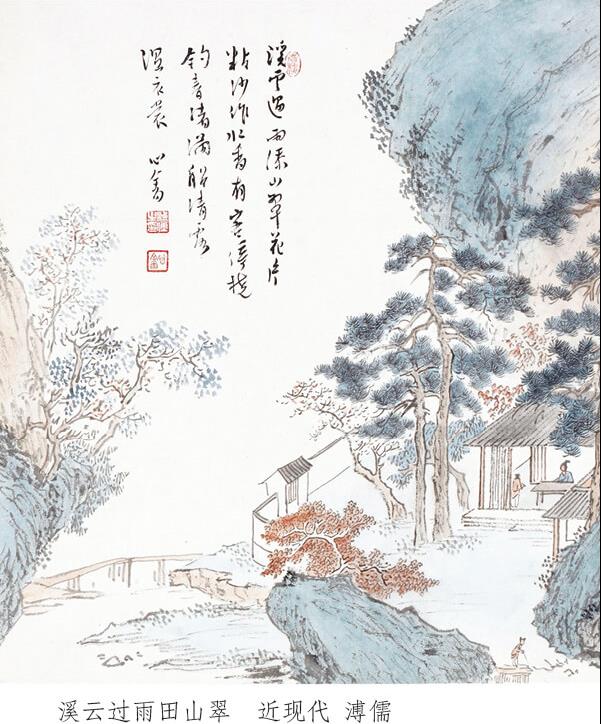 溪雲過雨添山翠花片
粘沙作水香有客停橈
釣春渚滿船清露
濕衣裳 心畬
溪云过雨田山翠 近现代 溥儒